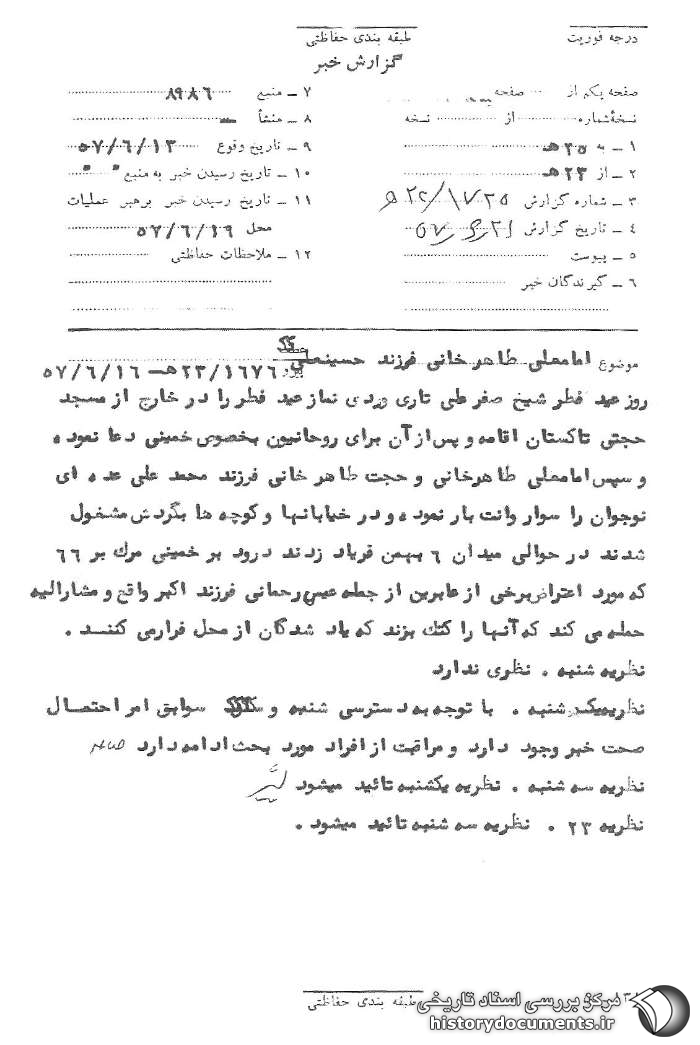 درجه فوریت
طبقه بندی حفاظتی
گزارش خبر
صفحه یکم از ........ صفحه
نسخهٔ شماره ........ از ........ نسخه
۱ ـ به ۳۵۰ هـ
۲ ـ از ۲۳ هـ
۳ ـ شماره گزارش
۴ ـ تاریخ گزارش
۵ ـ پیوست
۶ ـ گیرندگان خبر
۷ ـ منبع ۸۹۸۶
۸ ـ منشأ ــ
۹ ـ تاریخ وقوع ۵۷/۶/۱۳
۱۰ ـ تاریخ رسیدن خبر به منبع " "
۱۱ ـ تاریخ رسیدن خبر برهبر عملیات
محل ۵۷/۶/۱۹
۱۲ ـ ملاحظات حفاظتی
موضوع امامعلی طاهرخانی فرزند حسینعلی
پیرو ۲۳/۱۶۷۶هـ ـ ۵۷/۶/۱۶
روز عید فطر شیخ صفر علی تاری وردی نماز عید فطر را در خارج از مسجد
حجتی تاکستان اقامه و پس از آن برای روحانیون بخصوص خمینی دعا نموده
و سپس امامعلی طاهرخانی و حجت طاهر خانی فرزند محمد علی عده ای
نوجوان را سوار وانت بار نموده و در خیابانها و کوچه ها بگردش مشغول
شدند در حوالی میدان ۶ بهمن فریاد زدند درود بر خمینی مرگ بر ۶۶
که مورد اعتراض برخی از عابرین از جمله عیسی رحمانی فرزند اکبر واقع و مشارالیه
حمله می کند که آنها را کتک بزند که یاد شدگان از محل فرار می کنند .
نظریه شنبه . نظری ندارد
نظریه یکشنبه . با توجه به دسترسی شنبه و سوابق امر احتمال
صحت خبر وجود دارد و مراقبت از افراد مورد بحث ادامه دارد
نظریه سه شنبه . نظریه یکشنبه تائید میشود
نظریه ۲۳ . نظریه سه شنبه تائید میشود .
طبقه بندی حفاظتی
مرکز بررسی اسناد تاریخی
historydocuments.ir